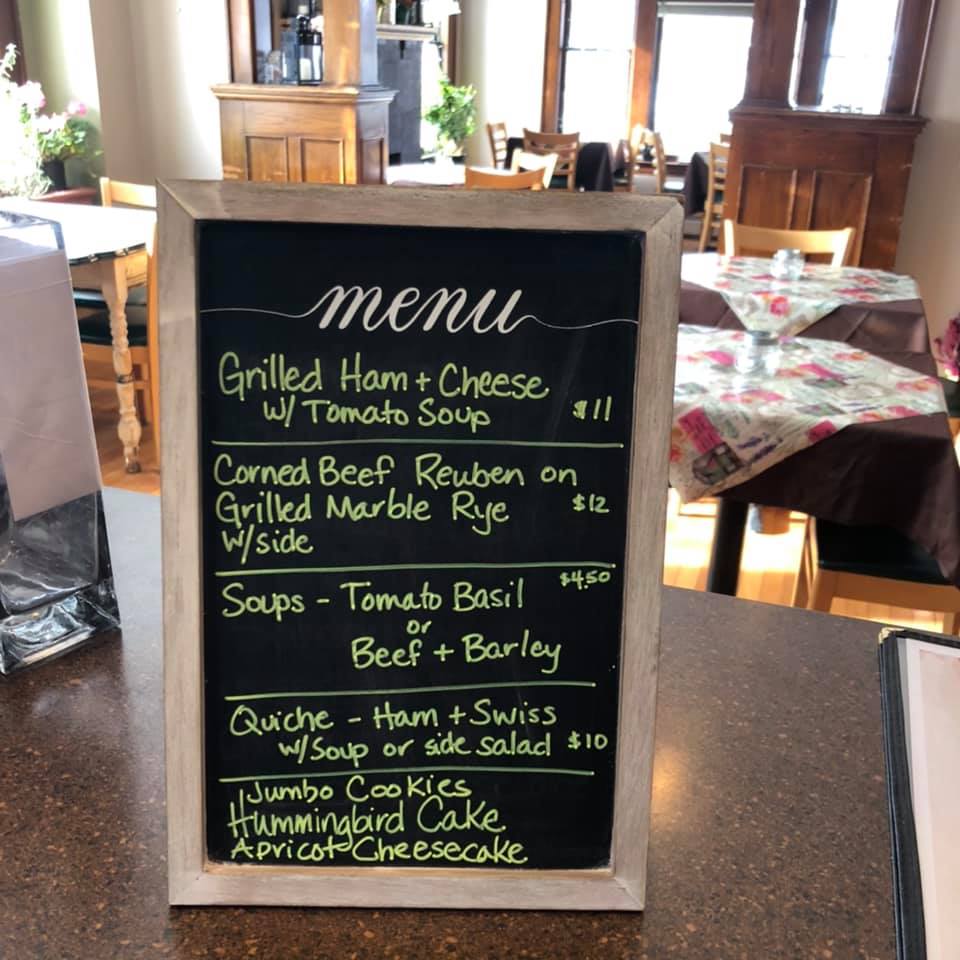 menu
Grilled Ham + Cheese
w/ Tomato Soup $11
Corned Beef Reuben on
Grilled Marble Rye $12
w/side
$4.50
Soups - Tomato Basil
or
Beef + Barley
Quiche - Ham + Swiss
w/Soup or side salad $10
Jumbo Cookies
Hummingbird Cake
Apricot Cheesecake